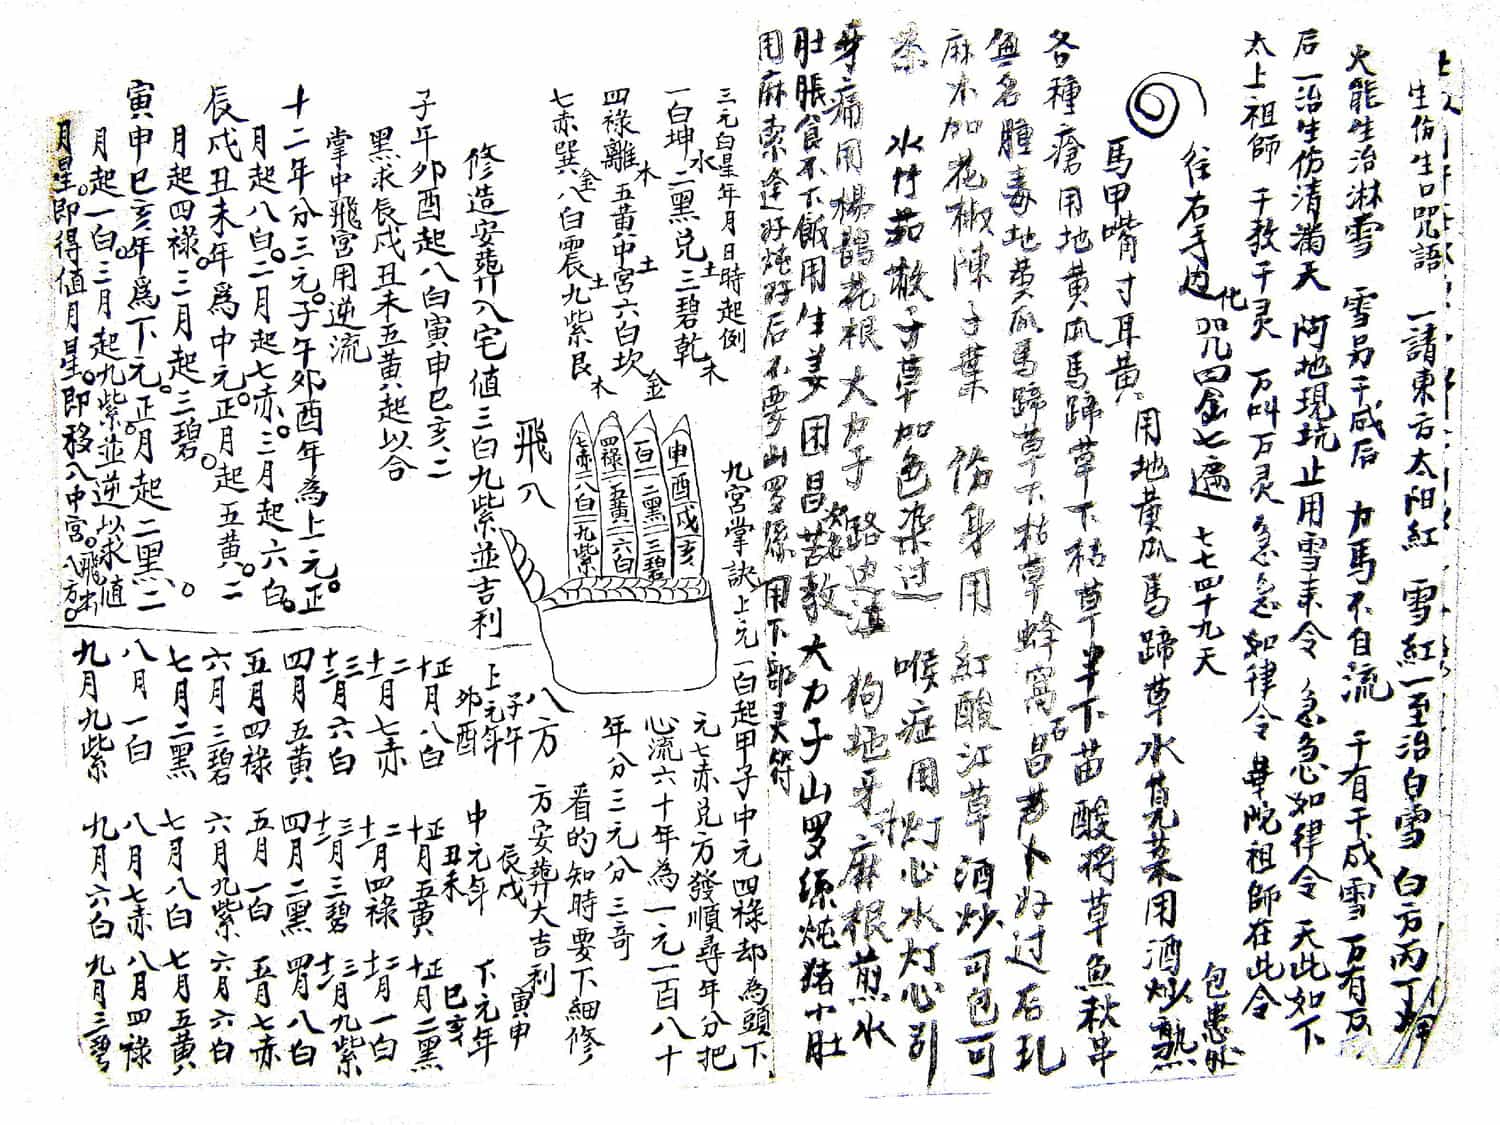 生伤生口咒語　一請東方太阳紅　雪紅一至治白雪　白方丙丁
火能生治淋雪　雪另千咸后　力馬不自流　千有千咸雪　万有万
后一治生伤清滿天　阿地現坑　止用雪来令　急急如律令　天此如下
太上祖師　千教千灵　万叫万灵　急急如律令　毋院祖師在此令
往右手边　化　咒四金七遍　七七四十九天　包患处
馬甲嘴寸耳黄　用地黄瓜馬蹄草水莧菜用酒炒熟
各種瘡用地黄瓜馬蹄草下枯草半下苗酸将草魚秋串
無名腫毒地黄瓜馬蹄草下枯草蜂窩石昌芦卜好过石孔
麻木加花椒陳子葉　伤身用　紅酸江草酒炒可包可
茶　水竹茹散子草加色染过　喉症用　灯心水灯心引
牙痛用楊鵲花根　大力子　路边　狗地牙　麻根煎水
肚脹食不下飯用生姜　田昌苦敷　大力子山罗絲炖猪小肚
用麻索逢好炖好后不要山罗絲　用下部灵符
三元白星年月日時起例
一白坤水二黑兑土三碧乾木
四祿離木五黄中宮土六白坎金
七赤巽金八白震土九紫艮木
九宮掌訣
上元一白起甲子中元四祿却為頭下
元七赤兑方發順尋年分把
心流六十年為一元一百八十
年分三元分三奇
看的知時要下細修
方安葬大吉利
飛八
八方
申酉戌亥
一白二黑三碧
四祿五黄六白
七赤八白九紫
修造安葬八宅值三白九紫並吉利
子午卯酉起八白寅申巳亥二
黑求辰戌丑未五黄起以合
掌中飛宮用逆流
十二年分三元。子午卯酉年為上元。正
月起八白。二月起七赤。三月起六白。
辰戌丑未年為中元。正月起五黄。二
月起四祿。三月起三碧。
寅申巳亥年為下元。正月起二黑。二
月起一白。三月起九紫並逆以求值
月星。即得值月星。即移入中宮。飛出八方。
上元年　子午卯酉
正十月八白
二十一月七赤
三十二月六白
四月五黄
五月四祿
六月三碧
七月二黑
八月一白
九月九紫
中元年　辰戌丑未
正十月五黄
二十一月四祿
三十二月三碧
四月二黑
五月一白
六月九紫
七月八白
八月七赤
九月六白
下元年　寅申巳亥
正十月二黑
二十一月一白
三十二月九紫
四月八白
五月七赤
六月六白
七月五黄
八月四祿
九月三碧